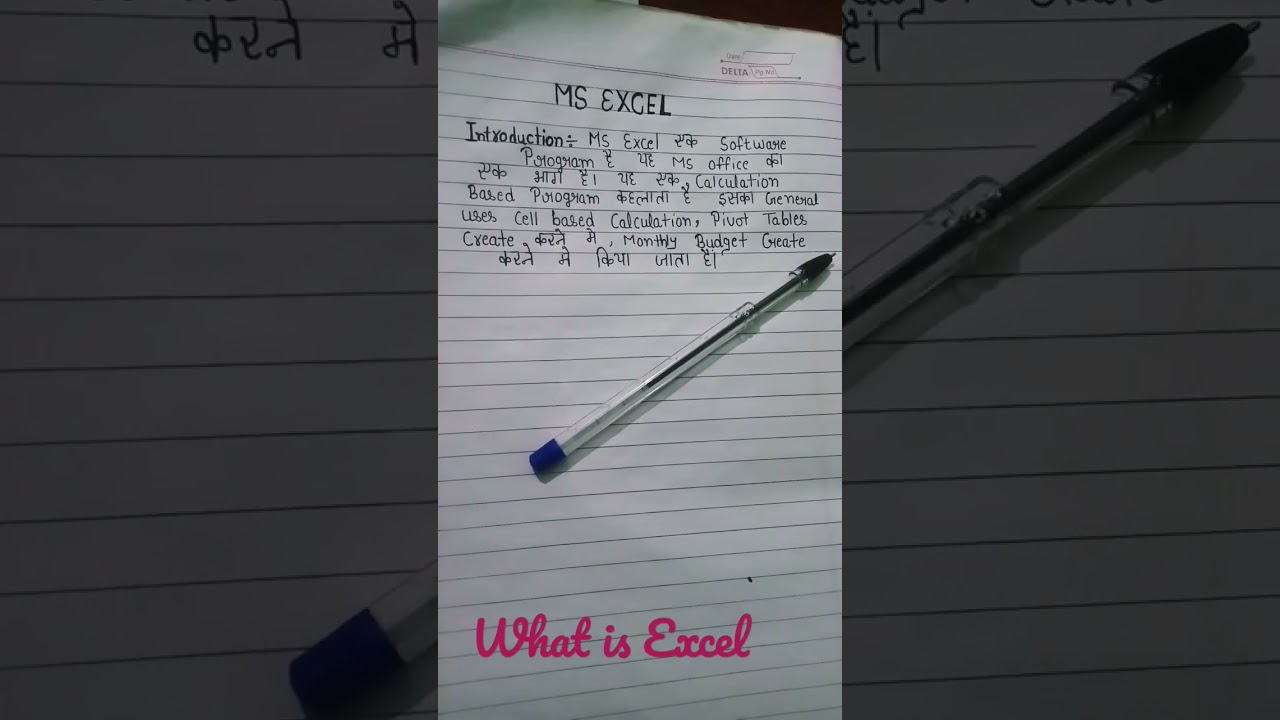 Date
DELTA Pg No.
MS EXCEL
Introduction:- MS Excel एक Software
Program है यह MS office का
एक भाग है। यह एक Calculation
Based Program कहलाता है इसका General
uses Cell based Calculation, Pivot Tables
Create करने मे, Monthly Budget Create
करने मे किया जाता है।
What is Excel
करने मे
है।